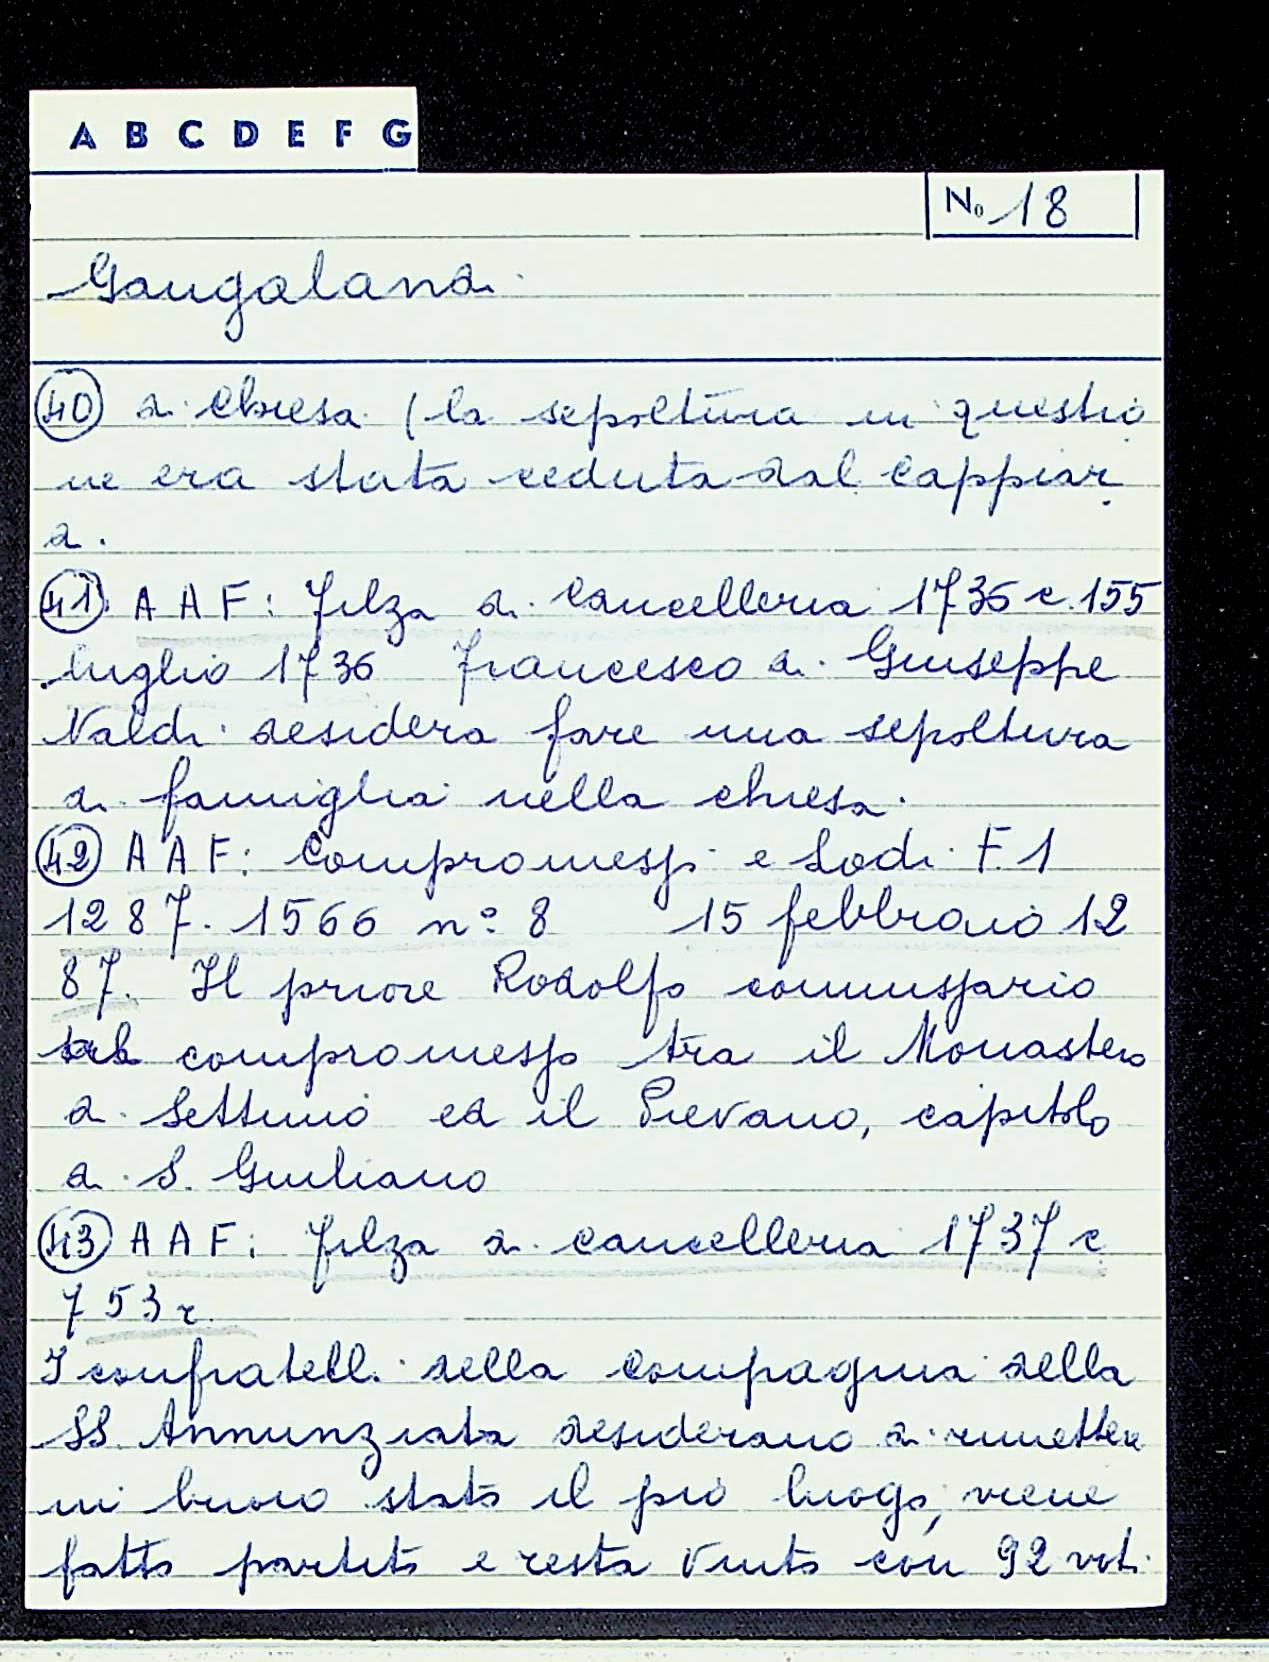 A B C D E F G
No 18
Gangalandi
40 di chiesa (la sepoltura in questio
ne era stata ceduta dal Cappiar
di.
41 A A F: Filza di Cancelleria 1736 c. 155
luglio 1736 Francesco di Giuseppe
Naldi desidera fare una sepoltura
di famiglia nella chiesa.
42 A A F: Compromessi e Lodi F. 1
1287. 1566 n° 8 15 febbraio 12
87. Il priore Rodolfo commissario
compromesso tra il Monastero
di Settimo ed il Pievano, capitolo
di S. Giuliano
43 A A F: Filza di cancelleria 1737 c
753 r.
I confratelli della Compagnia della
SS. Annunziata desiderano di rimettere
in buono stato il pio luogo, viene
fatto partito e resta vinto con 92 voti